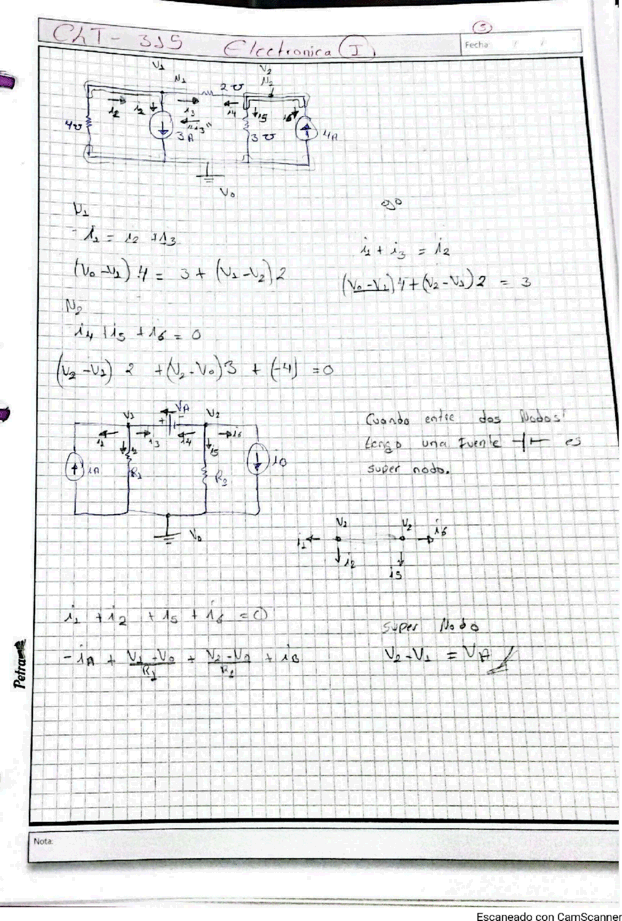 5
ChT-315 Electronica (I)
Fecha: / /
V1 N1 2℧ V2 N2
i2 i2 i3 i4 i5 i6
4℧ 3A "i3" 3℧ 4A
V0
N1
i1 = i2 + i3
i1 + i3 = i2
(V0-V1) 4 = 3 + (V1-V2) 2
(V0-V1) 4 + (V2-V1) 2 = 3
N2
i4 + i5 + i6 = 0
(V2-V1) 2 + (V2-V0) 3 + (-4) = 0
V1 VA V2
+ -
i1 i3 i4 i6
iA R1 i5 R2 iB
V0
Cuando entre dos Nodos
tengo una Fuente es
super nodo.
V1 V2 i6
i1 i2 i5
i1 + i2 + i5 + i6 = 0
-iA + (V1-V0)/R1 + (V2-V0)/R1 + iB
super Nodo
V2-V1 = VA
Petra
Nota:
Escaneado con CamScanner